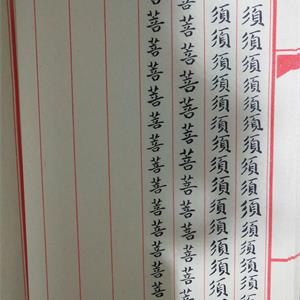 須須須須須須須須須須須須須須
須須須須須須須須須須須須須須
菩菩菩菩菩菩菩菩菩菩菩菩菩
菩菩菩菩菩菩菩菩菩菩菩菩菩菩